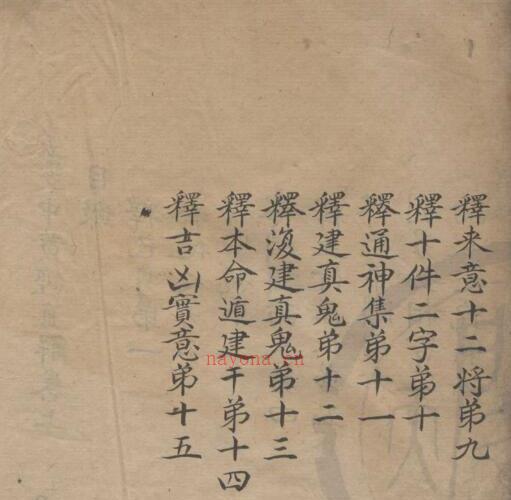 釋来意十二将苐九
釋十件二字苐十
釋通神集苐十一
釋建真鬼苐十二
釋復建真鬼苐十三
釋本命遁建干苐十四
釋吉凶實意苐十五
nayona.cn